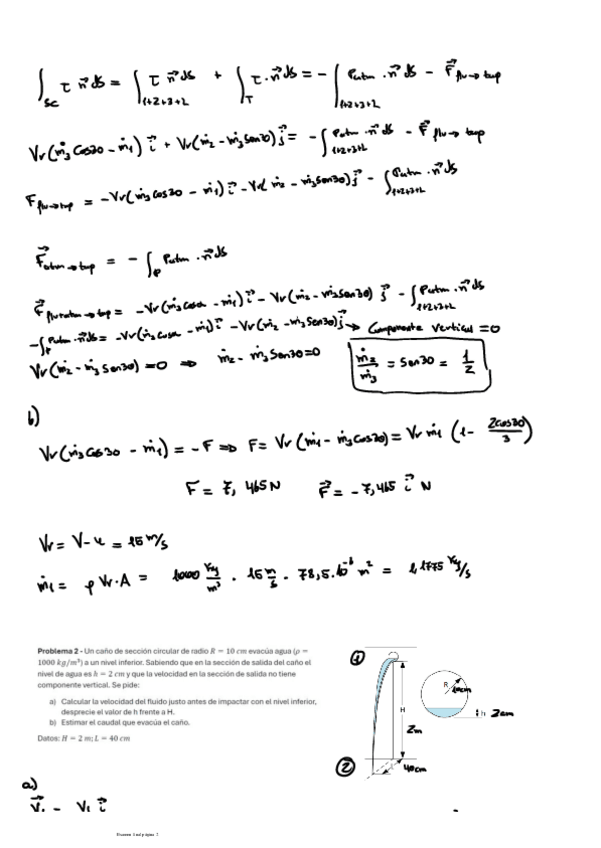 ∫_SC τ n⃗ ds = ∫_1+2+3+L τ n⃗ ds + ∫_T τ · n⃗ ds = - ∫_1+2+3+L Patm · n⃗ ds - F⃗ flu→tap
Vr(ṁ3 Cos30 - ṁ1) i⃗ + Vr(ṁ2 - ṁ3 Sen30) j⃗ = - ∫_1+2+3+L Patm · n⃗ ds - F⃗ flu→tap
F flu→tap = -Vr(ṁ3 Cos30 - ṁ1) i⃗ - Vr( ṁ2 - ṁ3Sen30) j⃗ - ∫_1+2+3+L Patm · n⃗ ds
F⃗ atm→tap = - ∫_P Patm · n⃗ ds
F⃗ flu+atm→tap = -Vr(ṁ3 Cosα - ṁ1) i⃗ - Vr(ṁ2 - ṁ3Sen30) j⃗ - ∫_1+2+3+L Patm · n⃗ ds
-∫_P Patm · n⃗ ds = -Vr(ṁ3 Cosα - ṁ1) i⃗ - Vr(ṁ2 - ṁ3Sen30) j⃗ → Componente Vertical = 0
Vr(ṁ2 - ṁ3 Sen30) = 0 ⇒ ṁ2 - ṁ3 Sen30 = 0 ṁ2/ṁ3 = Sen30 = 1/2
b)
Vr(ṁ3 Cos30 - ṁ1) = -F ⇒ F = Vr (ṁ1 - ṁ3 Cos30) = Vr ṁ1 (1 - 2cos30/3)
F = 7,465 N F⃗ = -7,465 i⃗ N
Vr = V-u = 15 m/s
ṁ1 = ρ Vr·A = 1000 kg/m³ · 15 m/s · 78,5·10⁻⁶ m² = 1,1775 kg/s
Problema 2 - Un caño de sección circular de radio R = 10 cm evacúa agua (ρ =
1000 kg/m³) a un nivel inferior. Sabiendo que en la sección de salida del caño el
nivel de agua es h = 2 cm y que la velocidad en la sección de salida no tiene
componente vertical. Se pide:
a) Calcular la velocidad del fluido justo antes de impactar con el nivel inferior,
desprecie el valor de h frente a H.
b) Estimar el caudal que evacúa el caño.
Datos: H = 2 m; L = 40 cm
1
H
2m
2
40cm
R
10cm
h
2cm
a)
V⃗1 = V1 i⃗